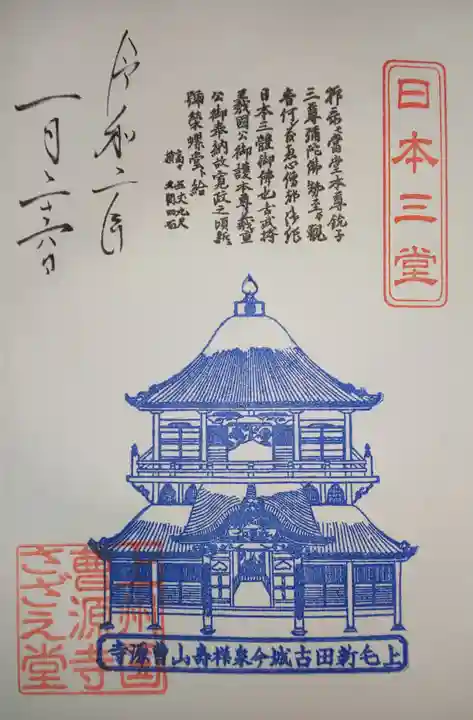 日本三堂
當堂本尊銚子
三尊彌陀佛勢至観
音何レモ恵心僧都御作
日本三體御佛也古武将
義國公御護本尊義重
公御奉納故寛政之頃新
榮螺堂下給
令和二年
一月二十六日
上毛新田古城今泉祥寿山曹源寺
曹源寺
さざえ堂